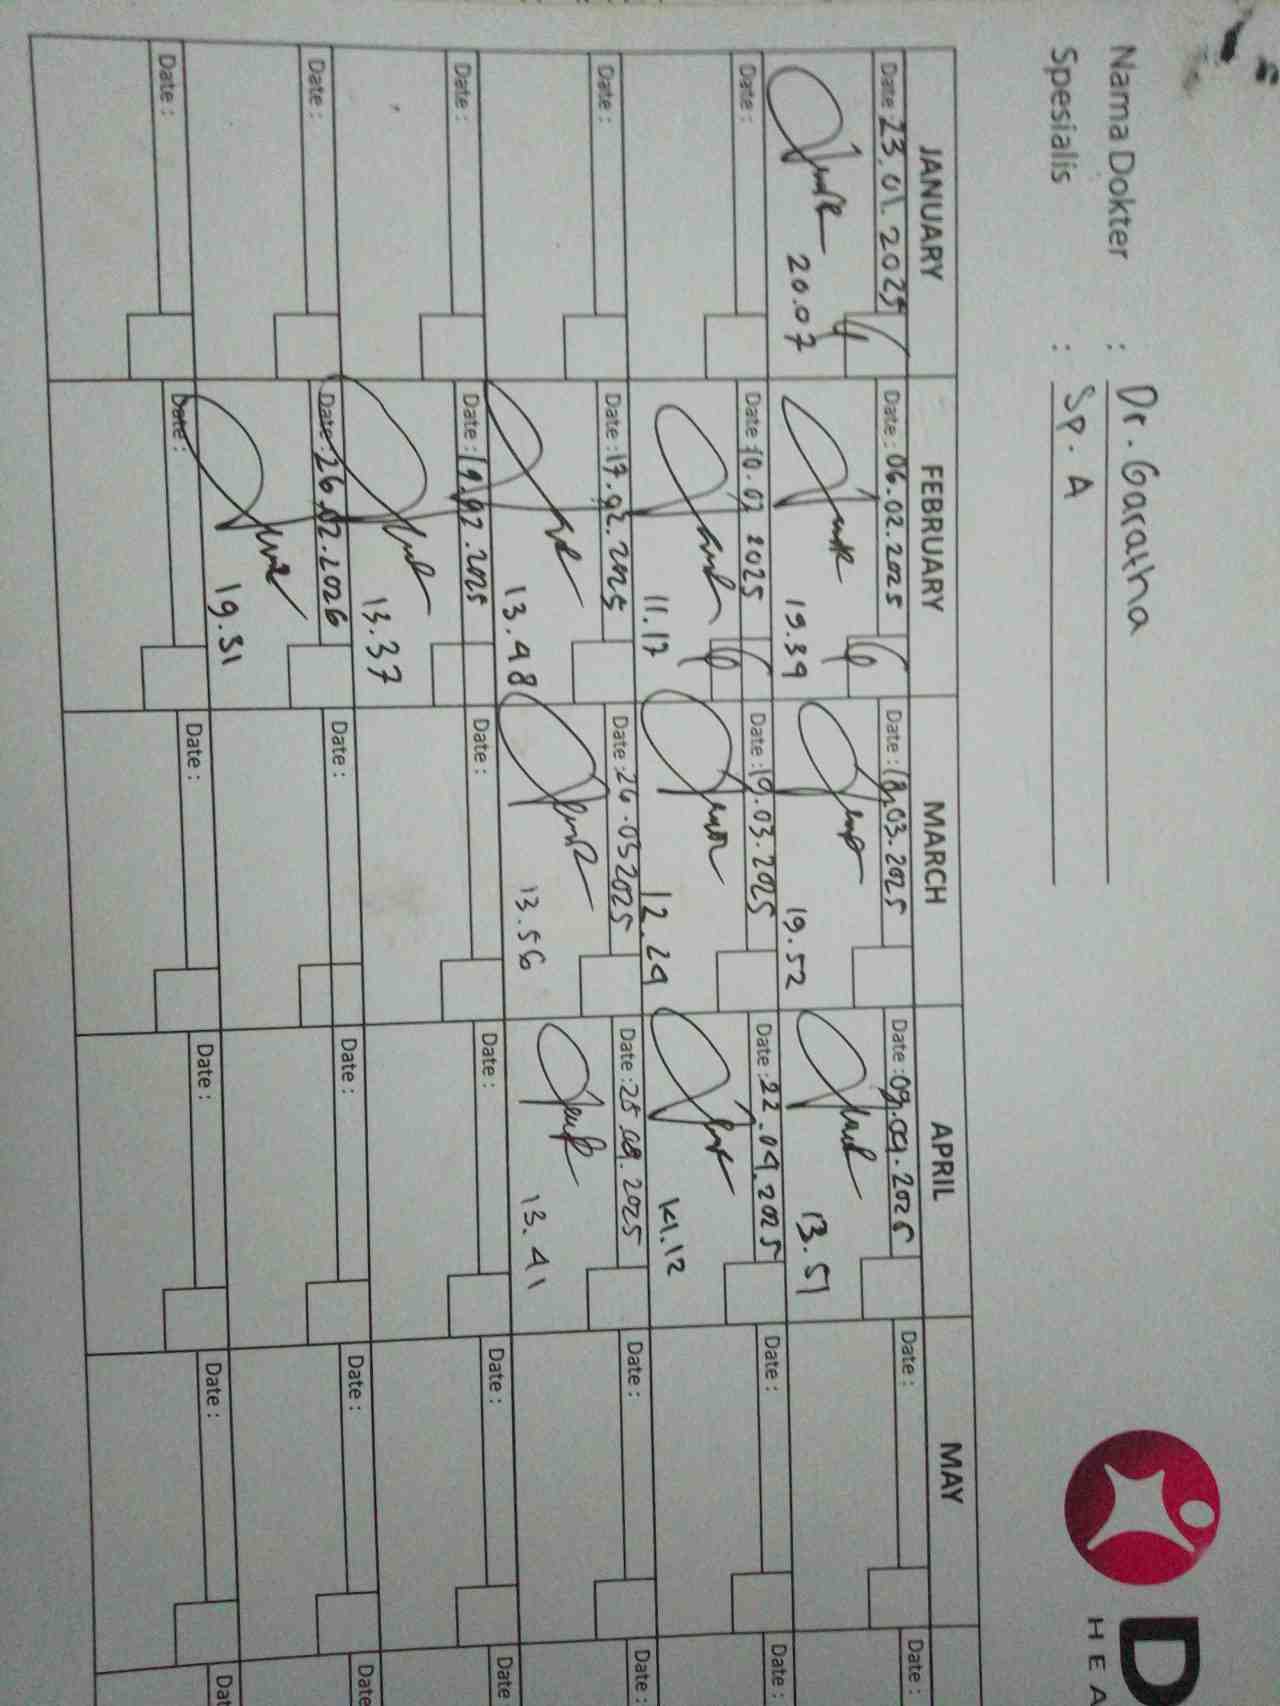 Nama Dokter : Dr. Garatha
Spesialis : Sp. A
D
HEA
JANUARY FEBRUARY MARCH APRIL MAY
Date : 23.01.2025 Date : 06.02.2025 Date : 18.03.2025 Date : 09.04.2025 Date : Date :
20.07 19.39 19.52 13.51
Date : Date : 10.02 2025 Date : 19.03.2025 Date : 22.04.2025 Date : Date :
11.17 12.24 14.12
Date : Date : 17.02.2025 Date : 26.03 2025 Date : 25.04.2025 Date : Date :
13.48 13.56 13.41
Date : Date : 19.02.2025 Date : Date : Date : Date :
13.37
Date : Date : 26.02.2026 Date : Date : Date : Date
19.31
Date : Date : Date : Date : Date : Dat